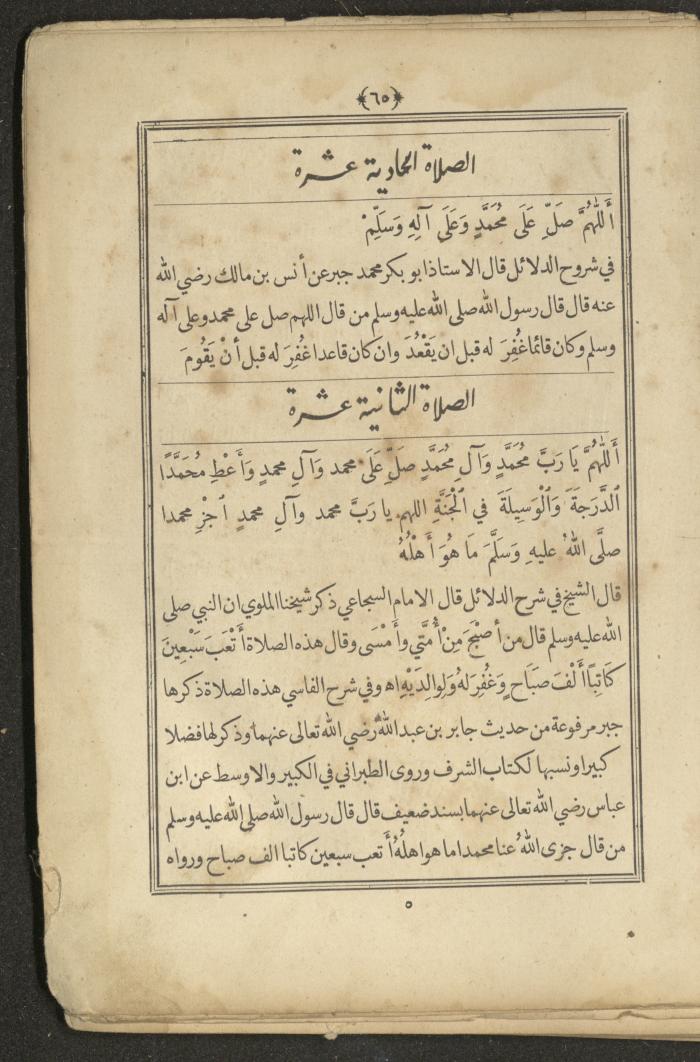 ﴿٦٥﴾
الصلاة الحادية عشرة
أَللّٰهُمَّ صَلِّ عَلَى مُحَمَّدٍ وَعَلَى آلِهِ وَسَلِّمْ
في شروح الدلائل قال الاستاذ ابو بكر محمد جبر عن أنس بن مالك رضي الله
عنه قال قال رسول الله صلى الله عليه وسلم من قال اللهم صل على محمد وعلى آله
وسلم وكان قائما غُفِرَ له قبل ان يَقْعُدَ وان كان قاعدا غُفِرَ له قبل أَنْ يَقُومَ
الصلاة الثانية عشرة
أَللّٰهُمَّ يَا رَبَّ مُحَمَّدٍ وَآلِ مُحَمَّدٍ صَلِّ عَلَى محمد وَآلِ محمدٍ وَأَعْطِ مُحَمَّدًا
ٱلدَّرَجَةَ وَٱلْوَسِيلَةَ في ٱلْجَنَّةِ اللهم يا رَبَّ محمد وآلِ محمدٍ ٱجْزِ محمدا
صلَّى اللهُ عليهِ وَسَلَّمَ مَا هُوَ أَهْلُهُ
قال الشيخ في شرح الدلائل قال الامام السجاعي ذكر شيخنا الملوي ان النبي صلى
الله عليه وسلم قال من أَصْبَحَ مِنْ أُمَّتِي وأَمْسَى وقال هذه الصلاة أَتْعَبَ سَبْعِينَ
كَاتِبًا أَلْفَ صَبَاحٍ وَغُفِرَ لَهُ وَلِوالِدَيْهِ اه وفي شرح الفاسي هذه الصلاة ذكرها
جبر مرفوعة من حديث جابر بن عبد الله رضي الله تعالى عنهما وذكر لها فضلا
كبيرا ونسبها لكتاب الشرف وروى الطبراني في الكبير والاوسط عن ابن
عباس رضي الله تعالى عنهما بسند ضعيف قال قال رسول الله صلى الله عليه وسلم
من قال جزى اللهُ عنا محمدا ما هو اهلُهُ أَتعب سبعين كاتبا الف صباح ورواه
٥